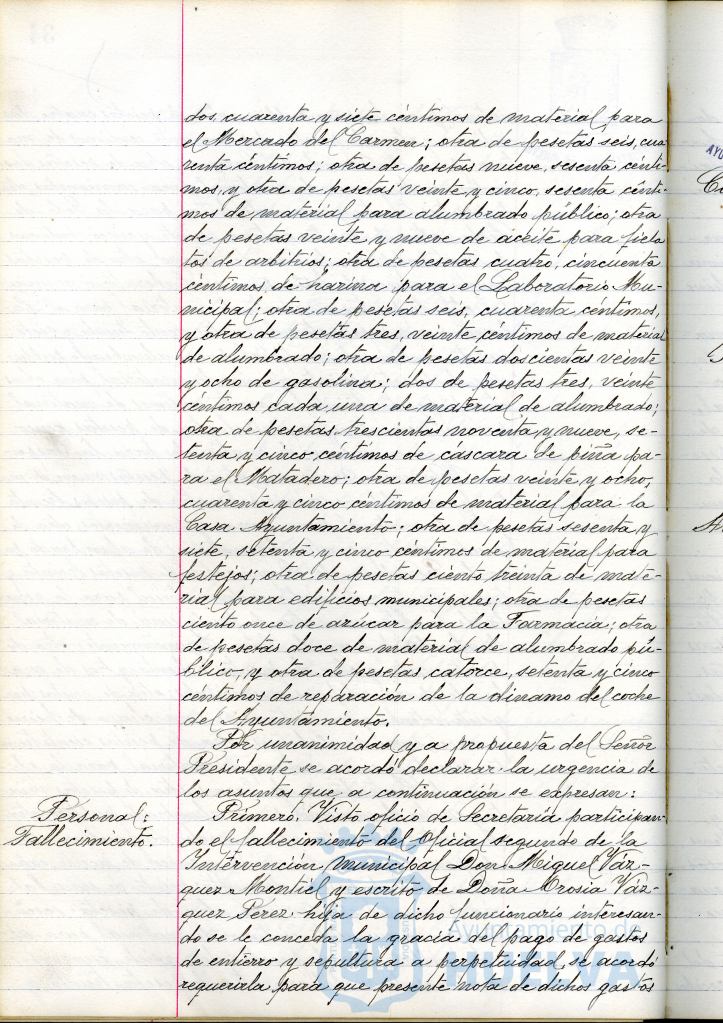 dos, cuarenta y siete céntimos de material para
el Mercado del Carmen; otra de pesetas seis, cua
renta céntimos; otra de pesetas nueve, sesenta cénti-
mos, y otra de pesetas veinte y cinco, sesenta cénti-
mos de material para alumbrado público; otra
de pesetas veinte y nueve de aceite para fiela
tos de arbitrios; otra de pesetas cuatro, cincuenta
céntimos de harina para el Laboratorio Mu-
nicipal; otra de pesetas seis, cuarenta céntimos,
y otra de pesetas tres, veinte céntimos de material
de alumbrado; otra de pesetas doscientas veinte
y ocho de gasolina; dos de pesetas tres, veinte
céntimos cada una de material de alumbrado;
otra de pesetas trescientas noventa y nueve, se-
tenta y cinco céntimos de cáscara de piña pa-
ra el Matadero; otra de pesetas veinte y ocho,
cuarenta y cinco céntimos de material para la
Casa Ayuntamiento; otra de pesetas sesenta y
siete, setenta y cinco céntimos de material para
festejos; otra de pesetas ciento treinta de mate-
rial para edificios municipales; otra de pesetas
ciento once de azúcar para la Farmacia; otra
de pesetas doce de material de alumbrado pú-
blico, y otra de pesetas catorce, setenta y cinco
céntimos de reparación de la dinamo del coche
del Ayuntamiento.
Por unanimidad y a propuesta del Señor
Presidente se acordó declarar la urgencia de
los asuntos que a continuación se expresan:
Personal:
Fallecimiento.
Primero. Visto oficio de Secretaría participan-
do el fallecimiento del Oficial segundo de la
Intervención municipal Don Miguel Váz-
quez Montiel y escrito de Doña Orosia Váz-
quez Perez hija de dicho funcionario interesan-
do se le conceda la gracia del pago de gastos
de entierro y sepultura a perpetuidad, se acordó
requerirla para que presente nota de dichos gastos
Ayuntamiento de
HUELVA